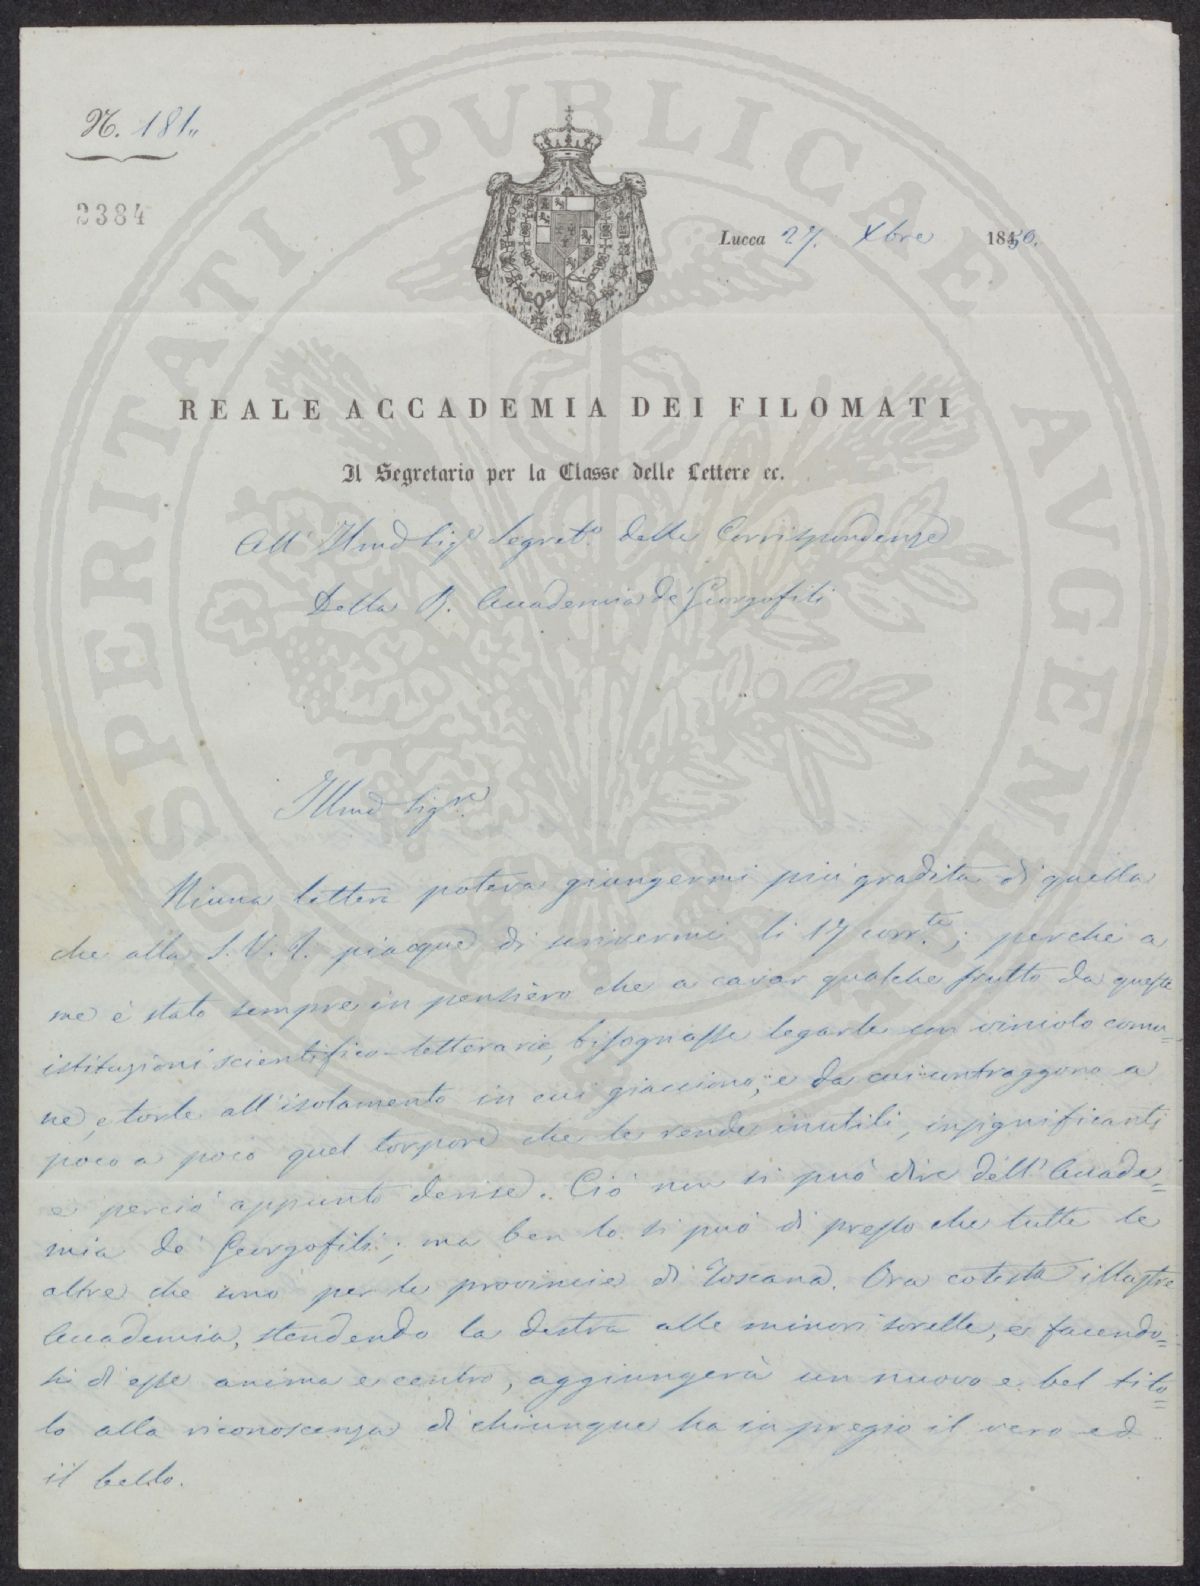 N. 181.
2384
Lucca 27. Xbre 1850.
REALE ACCADEMIA DEI FILOMATI
Il Segretario per la Classe delle Lettere ec.
All' Illmo Sigr Segreto. delle Corrispondenze
Della R. Accademia de' Georgofili
Illmo Sigre.
Niuna lettera poteva giungermi più gradita di quella
che alla S. V. I. piacque di scrivermi li 17 corrte; perchè a
me è stato sempre in pensiero che a cavar qualche frutto da queste
istituzioni scientifico-letterarie, bisognasse legarle con vincolo comu=
ne, e torle all'isolamento in cui giacciono, e da cui contraggono a
poco a poco quel torpore che le rende inutili, insignificanti
e perciò appunto derise. Ciò non si può dire dell'Accade=
mia de' Georgofili; ma ben lo si può di presso che tutte le
altre che sono per le provincie di Toscana. Ora cotesta illustre
Accademia, stendendo la destra alle minori sorelle, e facendo=
si di esse anima e centro, aggiungerà un nuovo e bel tito=
lo alla riconoscenza di chiunque ha in pregio il vero ed
il bello.
PROSPERITATI PVBLICAE AVGENDAE